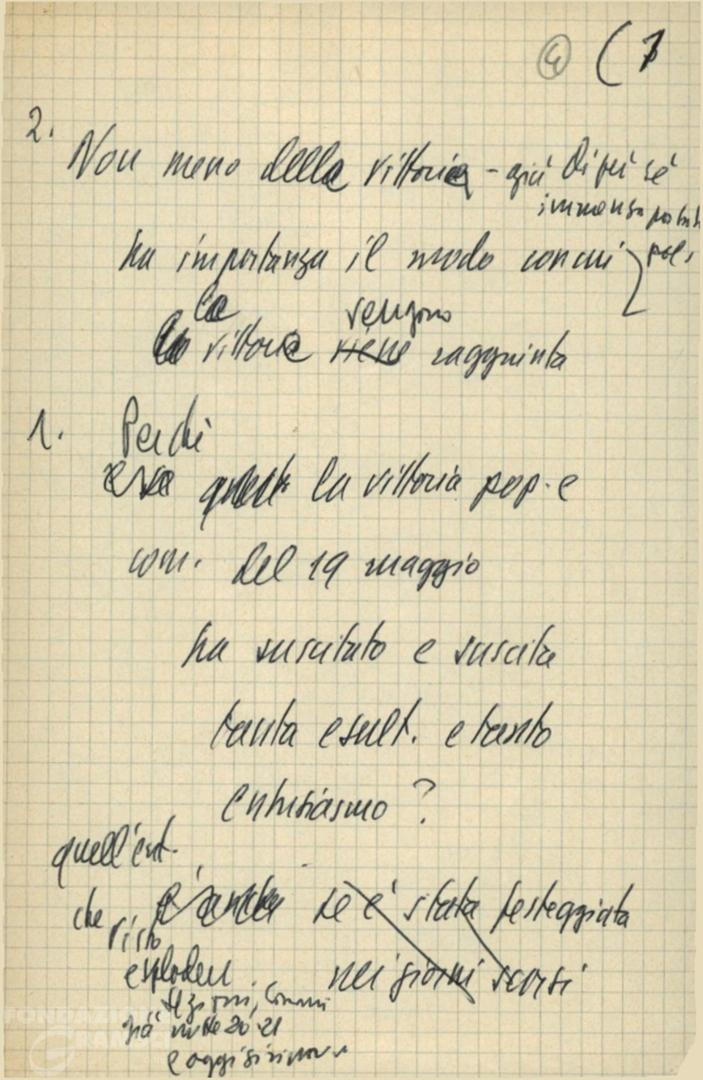 ④ ( 7
2.
Non meno della vittoria - già di per sé
immensa portata
pol.
ha importanza il modo con cui
la vengono
la vittoria viene raggiunta
1. Perché
la vittoria pop. e
com. del 19 maggio
ha suscitato e suscita
tanta esult. e tanto
entusiasmo?
quell'ent.
che visto
è anche se è stata festeggiata
esplodere nei giorni scorsi
sezioni, Comuni
già notte 20-21
e oggi si rinnova